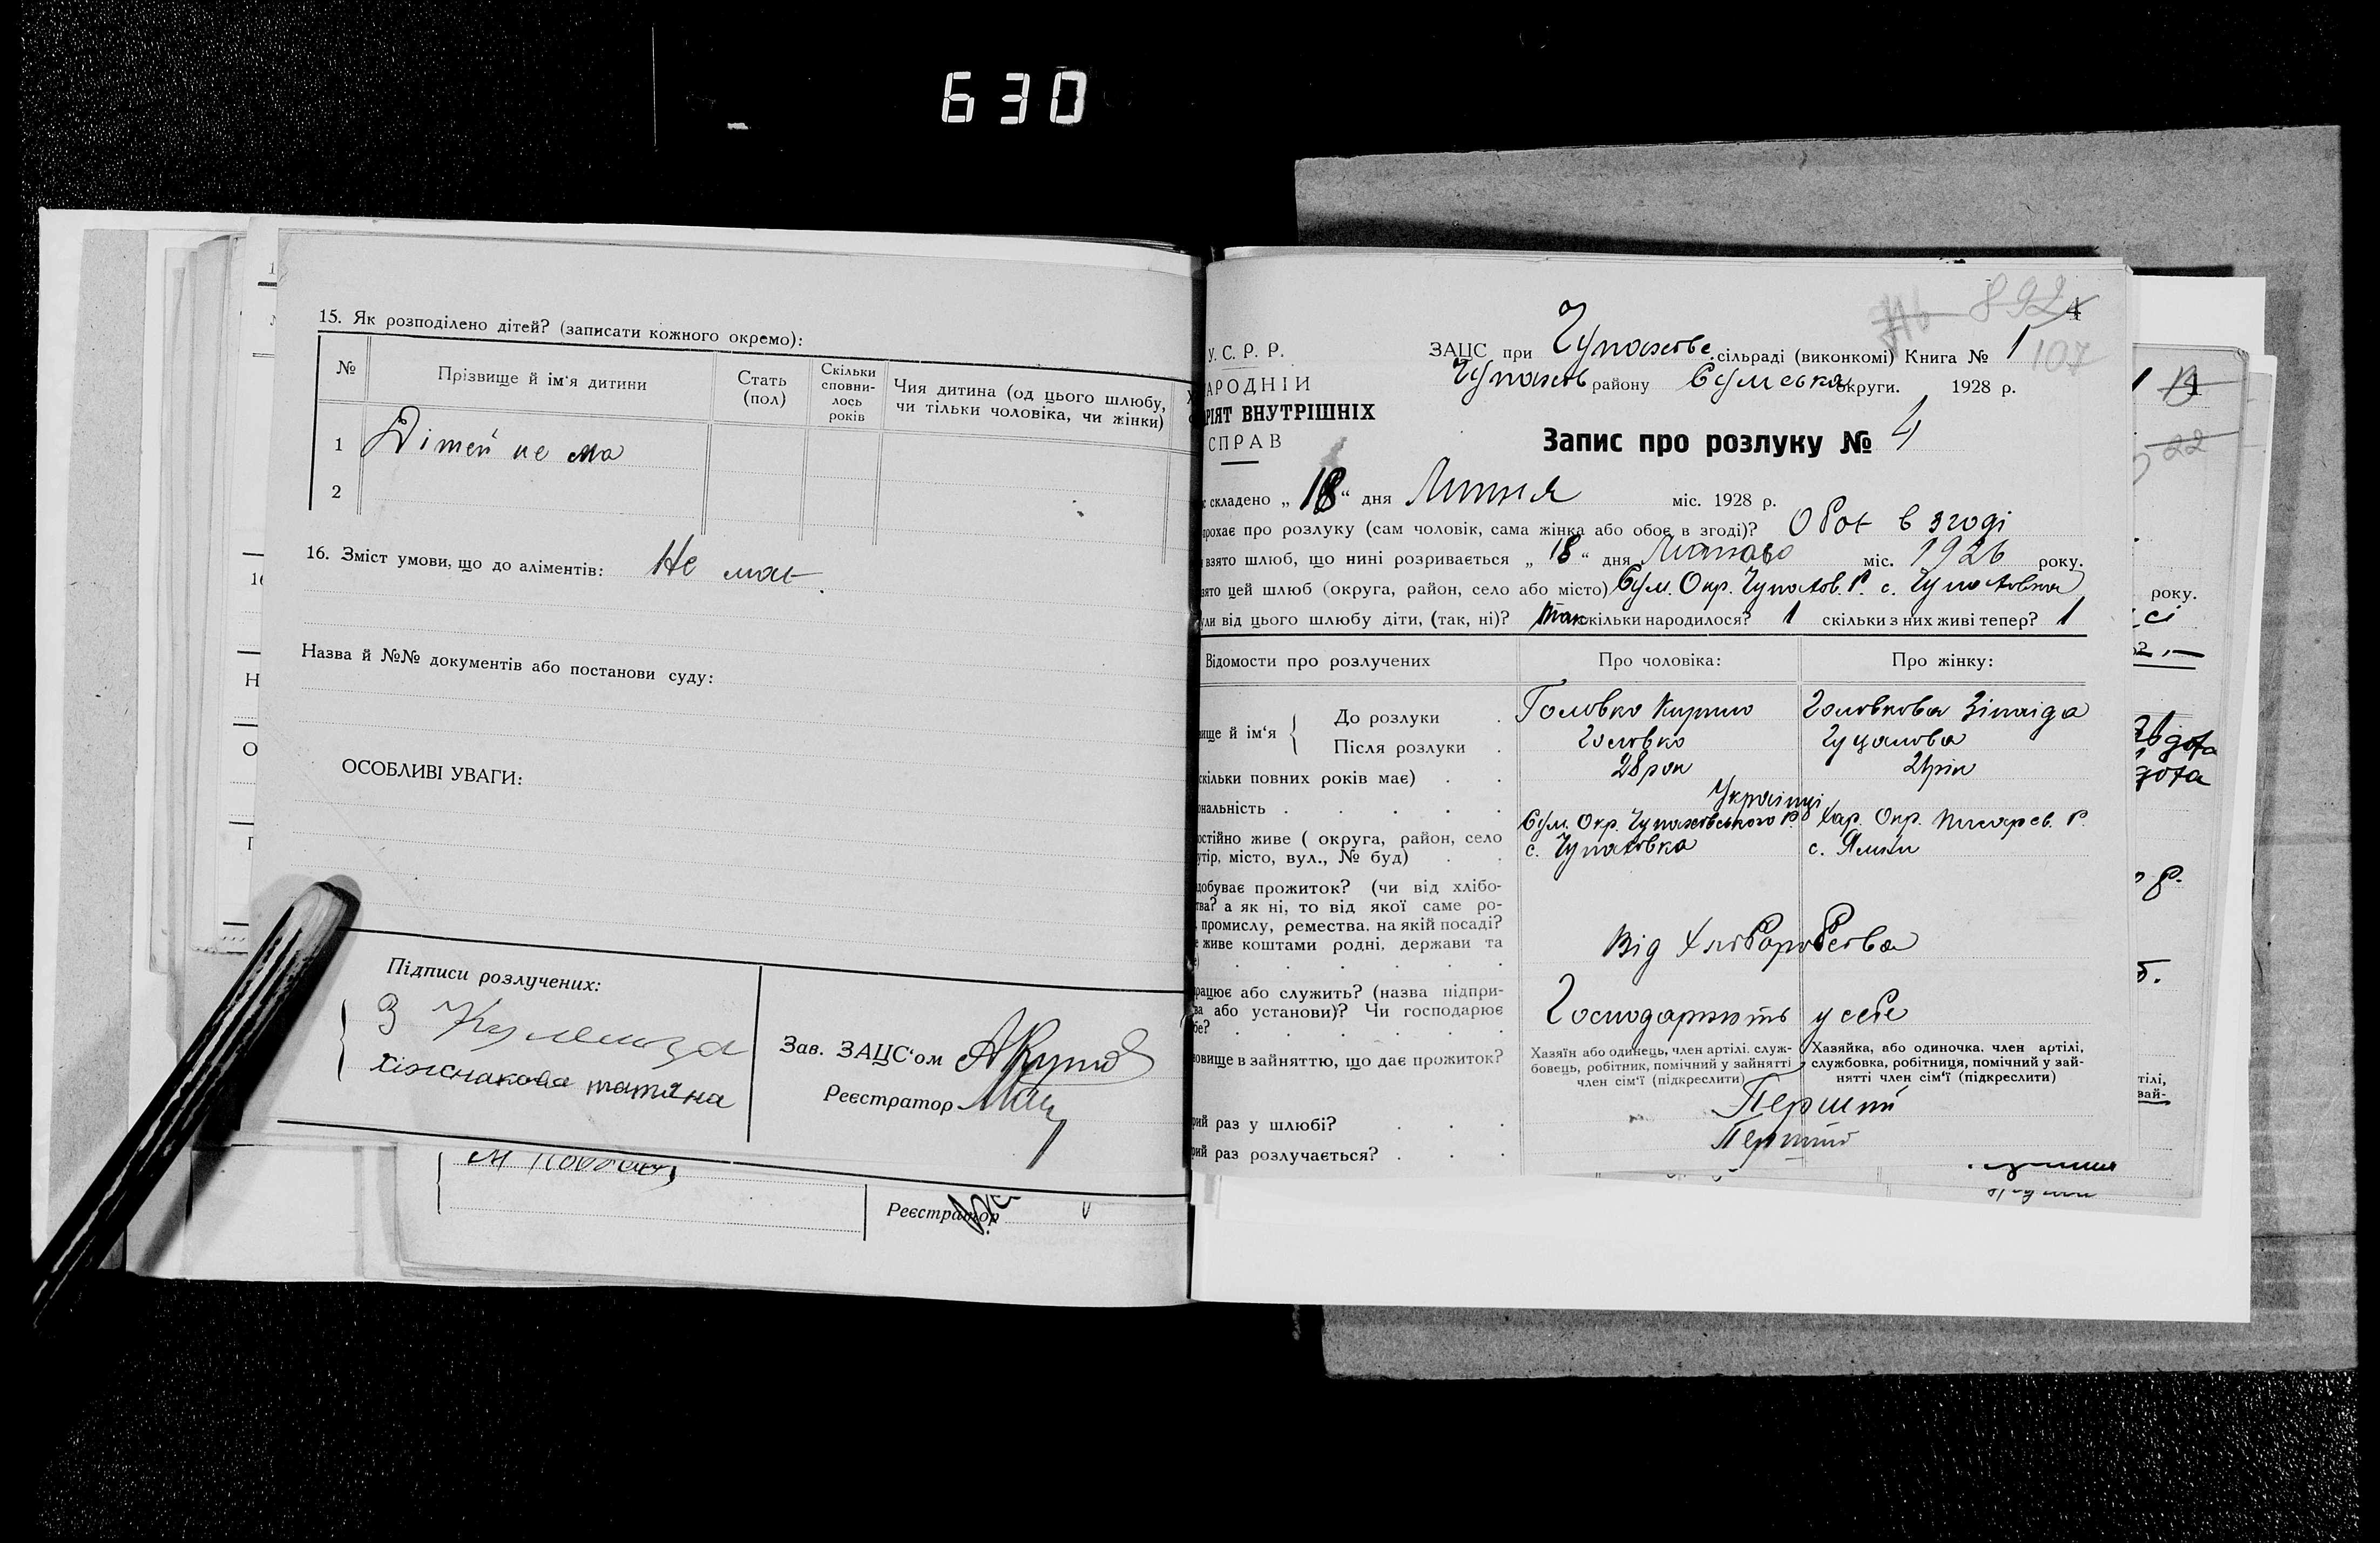 630
15. Як розподілено дітей? (записати кожного окремо):
№ Прізвище й ім'я дитини Стать (пол) Скільки сповни-лось років Чия дитина (од цього шлюбу, чи тільки чоловіка, чи жінки)
1 Дітей не ма
2
16. Зміст умови, що до аліментів: Не має.
Назва й №№ документів або постанови суду:
ОСОБЛИВІ УВАГИ:
Підписи розлучених:
З
татяна
Зав. ЗАЦС'ом
Реєстратор
Реєстратор
892 4
У. С. Р. Р.
ЗАЦС при Чупахове. сільраді (виконкомі) Книга № 1
107
АРОДНІЙ
Чупахів району Сумська округи. 1928 р.
РІЯТ ВНУТРІШНІХ
СПРАВ
Запис про розлуку № 4
складено „ 18 “ дня Липня міс. 1928 р.
прохає про розлуку (сам чоловік, сама жінка або обоє в згоді)? Обоє в згоді
взято шлюб, що нині розривається „ 18 “ дня міс. 1926 року.
зято цей шлюб (округа, район, село або місто) Сум. Окр. Чупахов. Р. с. Чупаховка
ули від цього шлюбу діти, (так, ні)? так скільки народилося? 1 скільки з них живі тепер? 1
Відомости про розлучених Про чоловіка: Про жінку:
ище й ім'я { До розлуки . Головко Кирило Головкова Зінаіда
Після розлуки . Головко Гуцалова
кільки повних років має) . . 28 рок 24 рік
ональність . . . . . Українці
остійно живе ( округа, район, село Сум. Окр. Чупаховського Р. Хар. Окр. Писарев. Р.
утір, місто, вул., № буд) . . с. Чупаховка с. Ямки
добуває прожиток? (чи від хлібо-
тва? а як ні, то від якої саме ро-
промислу, ремества, на якій посаді?
е живе коштами родні, держави та
Від Хлоборобства
рацює або служить? (назва підпри-
ва або установи)? Чи господарює
бе? . . . . . Господарюють у себе
новище в зайняттю, що дає прожиток?
Хазяїн або одинець, член артілі, служ-
бовець, робітник, помічний у зайнятті
член сім'ї (підкреслити)
Хазяйка, або одиночка, член артілі,
службовка, робітниця, помічний у зай-
нятті член сім'ї (підкреслити)
рий раз у шлюбі? . . . Перший
рий раз розлучається? . . . Перший
22
року.
сі
тілі,
зай-